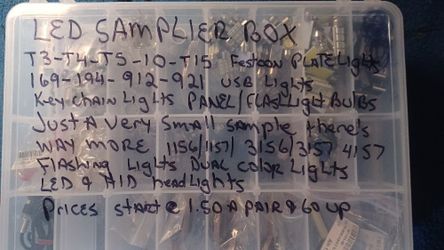 LED SAMPLIER BOX
T3-T4-T5-10-T15 Festoon PLATE Lights
169-194-912-921 USB Lights
Key chain Lights PANEL/FLASHLight BULBS
Just A very small sample there's
way more 1156/1157/3156/3157 4157
Flashing Lights Dual color Lights
LED & HID headlights
Prices start @ 1.50 A pair & GO UP